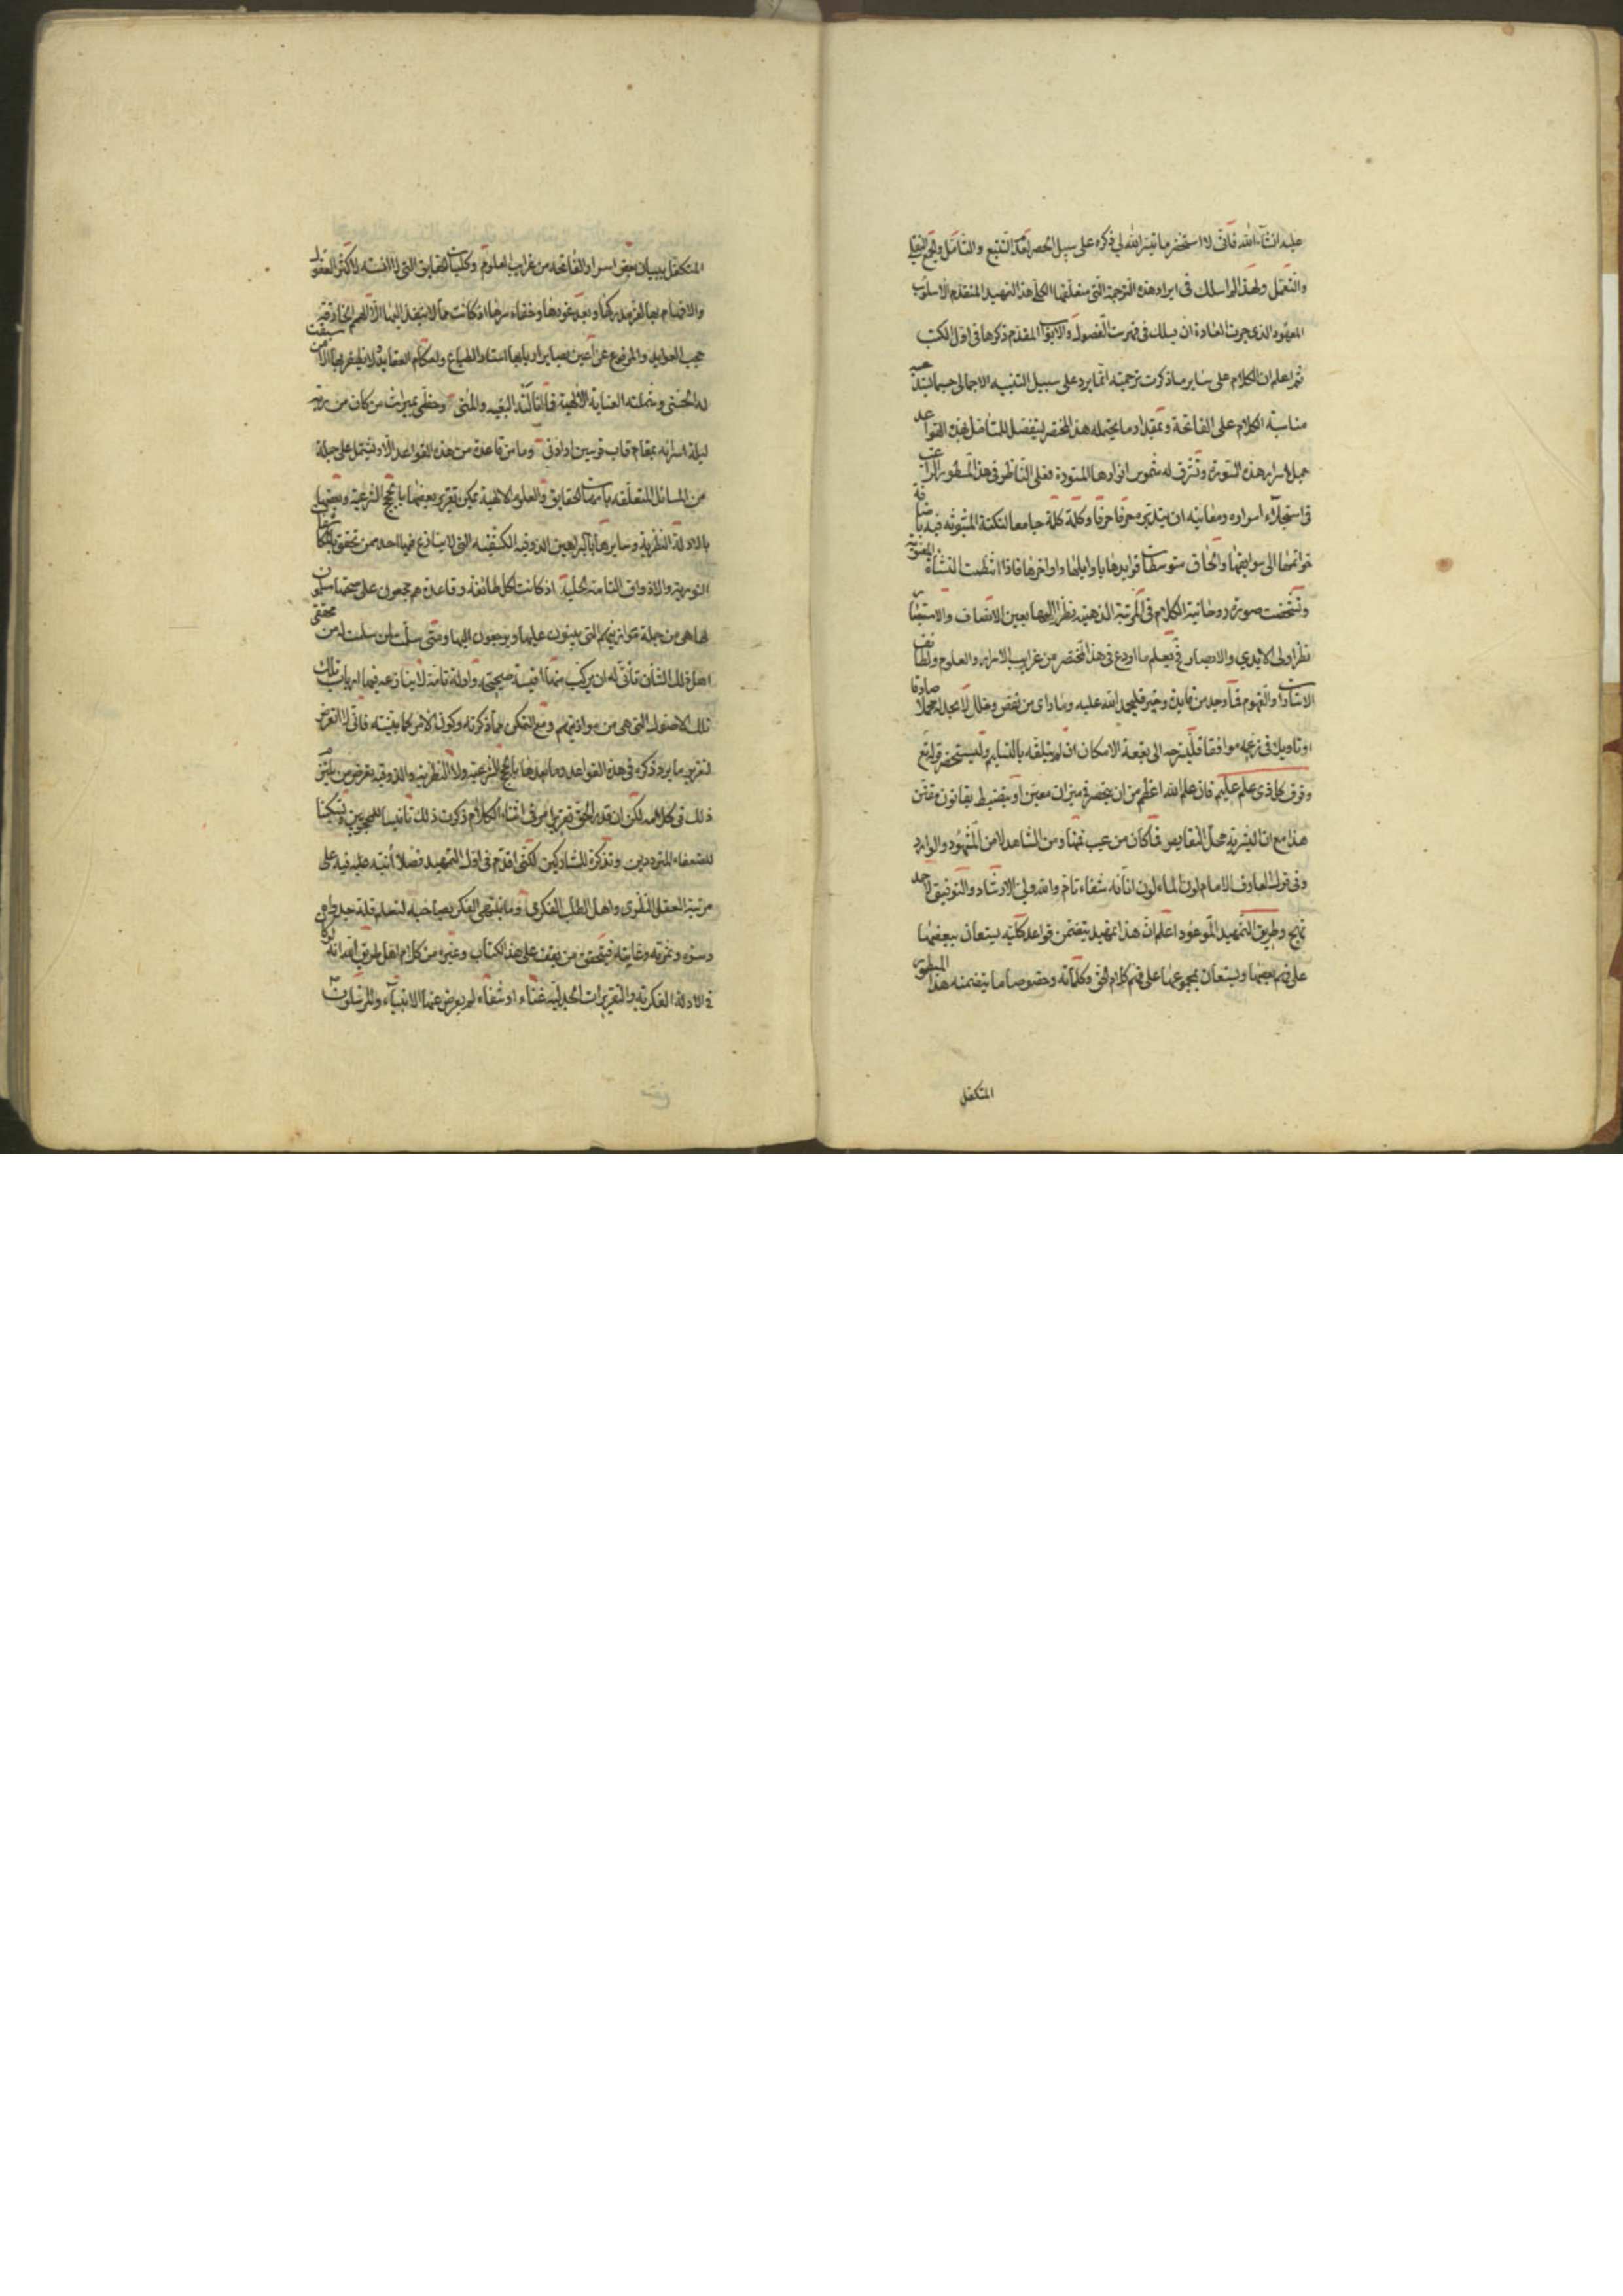 عليه انشآء الله فانى لا استحضر ما تيسر الله لي ذكره على سبيل الحصر بعد التتبع والتأمل والجمع النقلي
والتعمل ولهذا لم اسلك فى ايراد هذه الترجمة التى متعلقها الكلى هذا التمهيد المتقدم الاسلوب
المعهود الذى جرت العادة ان يسلك فى فهرست الفصول والابواب المقدم ذكرها فى اول الكتب
ثم ليعلم ان الكلام على ساير ما ذكرت ترجمته انما يرد على سبيل التنبيه الاجمالى حسبما يستدعيه
مناسبة الكلام على الفاتحة وبمقدار ما يحتمله هذا المختصر ليتفصل للمتأمل بهذه القواعد
جمل اسرار هذه السورة وتشرف له شموس انوارها المستورة فعلى الناظر فى هذا المسطور الراغب
فى استجلاء اسراره ومعانيه ان يتدبره حرفا حرفا وكلمة كلمة جامعا النكتة المبثوثة فيه باضافة
خواتمها الى سوابقها والحاق متوسطات فوايدها باوايلها واواخرها فاذا انتظمت النشأة المعنوية
وتشخصت صورة روحانية الكلام فى المرتبة الذهنية نظر اليها بعين الانصاف والاستبصار
نظر اولى الايدي والابصار فح يعلم ما اودع فى هذا المختصر من غرايب الاسرار والعلوم ولطائف
الاشارات والفهوم فما وجد من فايدة وخير فليحمد الله عليه وما راى من نقص وخلل لا يجد له محملا صادقا
او تاويلا فى زعمه موافقا فليسرحه الى بقعة الامكان ان لم يتلقه بالتسليم وليستحضر قوله تع
وفوق كل ذى علم عليم فان علم الله اعظم من ان ينحصر فى ميزان معين او ينضبط بقانون مقنن
هذا مع ان البشرية محل النقايص فما كان من عيب فمنها ومن الشاهد لا من المشهود والوارد
وفى قول العارف الامام لون الماء لون انائه شفاء تام والله ولى الارشاد والتوفيق لاحمد
نهج وطريق التمهيد الموعود اعلم ان هذا تمهيد يتضمن قواعد كلية يستعان ببعضها
على فهم بعضها ويستعان بمجموعها على فهم كلام الحق وكلماته وخصوصا ما يتضمنه هذا المسطور
المتكفل
المتكفل ببيان بعض اسرار الفاتحه من غرايب العلوم وكليات الحقايق التى لا انسة لاكثر العقول
والافهام بها لعز مدركها وبعد غورها وخفاء سرها اذ كانت مما لا ينفذ اليها الا الهمم الخارقة
حجب العوايد والمرفوع عن اعين بصاير اربابها استار الطباع واحكام العقايد ولا يظفر بها الا من سبقت
له الحسنى وشملته العناية الالهية فانالته البغيه والمنى وحظى بميراث من كان من ربه
ليلة اسرائه بمقام قاب قوسين او ادنى وما من قاعدة من هذه القواعد الا وتشتمل على جملة
من المسائل المتعلقه بامهات الحقايق والعلوم الالهية يمكن تقرير بعضها بالحجج الشرعية وبعضها
بالادلة النظرية وسايرها بالبراهين الذوقيه الكشفيه التى لا ينازع فيها احد ممن تحقق بالمكاشفات
النورية والاذواق التامة الجلية اذ كانت لكل طائفة وقاعدة هم مجمعون على صحتها مسلمون
لها هى من جملة موازينهم التى يبنون عليها ويرجعون اليها ومتى سلمت لمن سلمت له من محققى
اهل ذلك الشأن تأتى له ان يركب منها اقيسة صحيحة وادلة تامة لا ينازعه فيها ارباب تلك
تلك الاصول التى هى من موازينهم ومع التمكن مما ذكرته وكون الامر كما بينته فانى لا اتعرض
لتقرير ما يرد ذكره فى هذه القواعد وما بعدها بالحجج الشرعية ولا النظريه والذوقيه بغرض من يلتزم
ذلك فى كل كلامه لكن ان قدر الحق تقرير امر فى اثناء الكلام ذكرت ذلك تانيسا للمحجوبين وتسكينا
للضعفاء المترددين وتذكرة للمشاركين لكنى اقدم فى اول التمهيد فصلا انبه عليه فيه على
مرتبة العقل النظرى واهل الطلب الفكرى وما ينتهى الفكر بصاحبه ليعلم قلة جدواه
وسره وثمرته وغايته فيتحقق من يقف على هذا الكتاب وغيره من كلام اهل طريق الله انه لو كان
فى الادلة الفكرية والتقريرات الجدلية غناء او شفاء لم يعرض عنها الانبياء والمرسلون